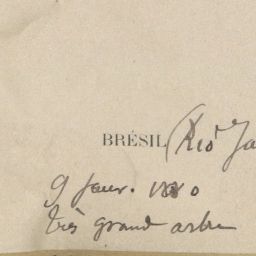 BRÉSIL (Rio Ja
9 favr. 1880
très grand arbre